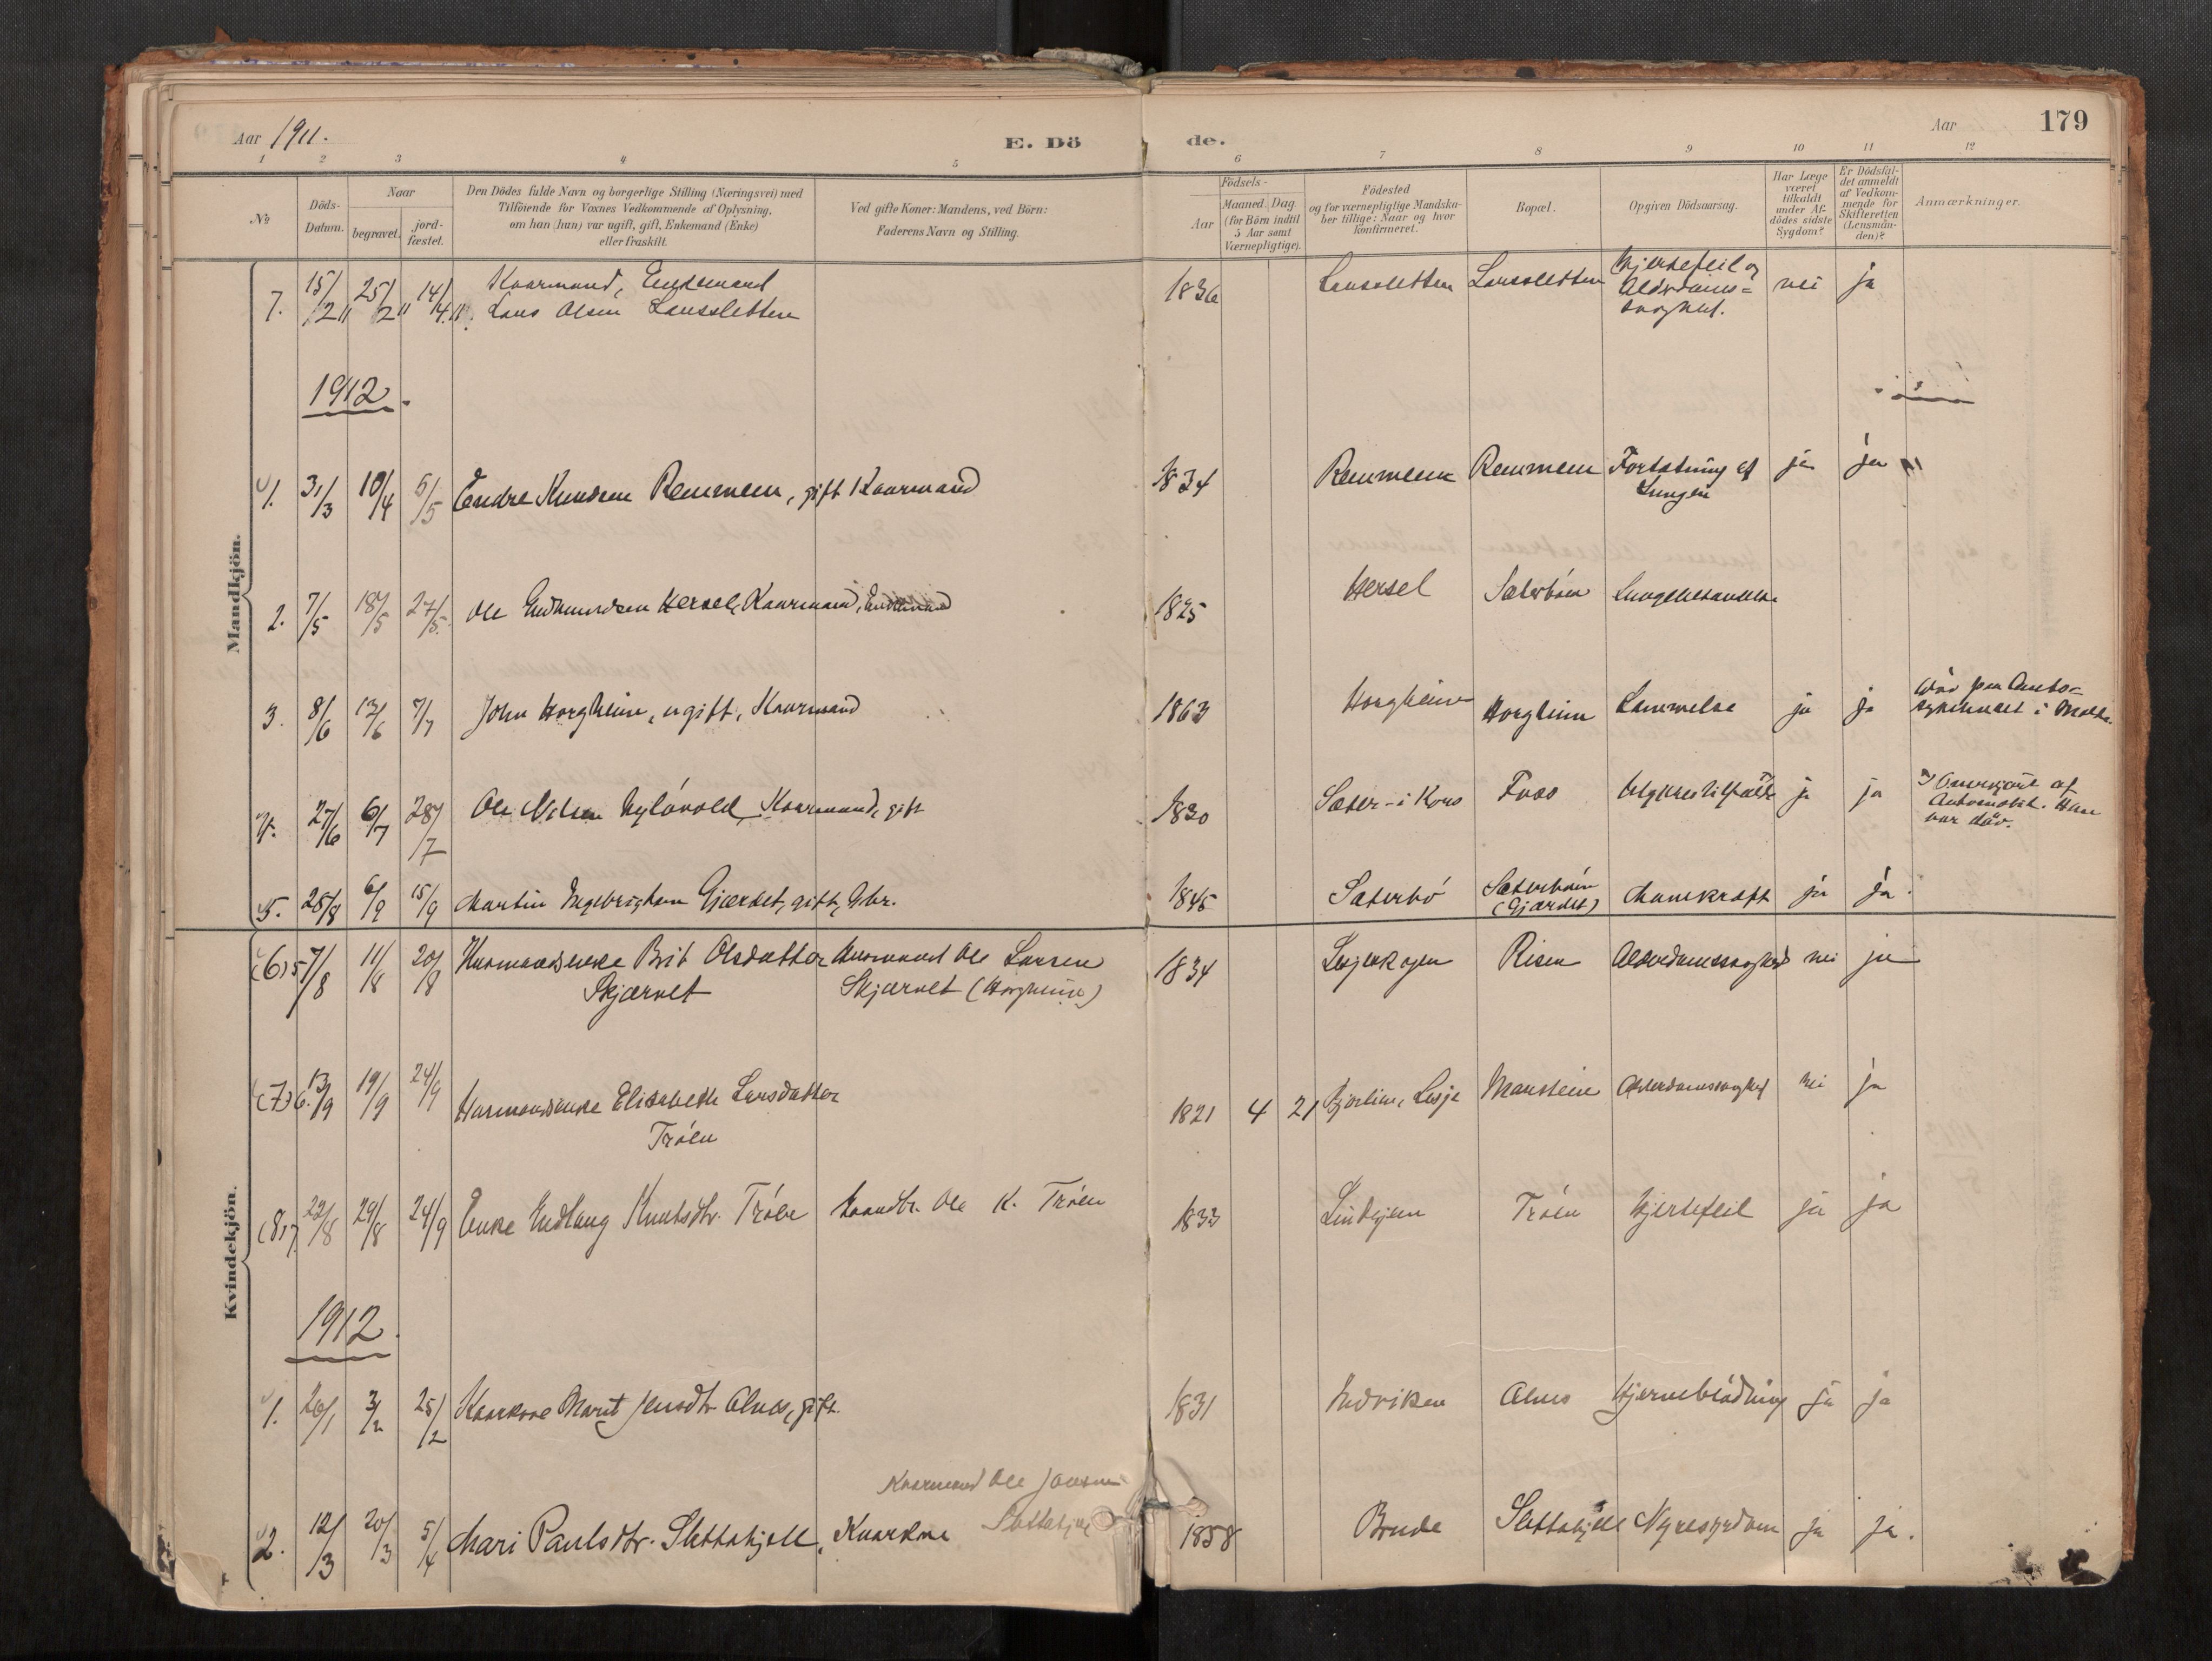 Aar 1911.
E. Dö
de.
Aar
179
1 2 3 4 5 6 7 8 9 10 11 12
No
Döds-
Datum.
Naar
begravet.
jord-
fæstet.
Den Dödes fulde Navn og borgerlige Stilling (Næringsvei) med
Tilföiende for Voxnes Vedkommende af Oplysning,
om han (hun) var ugift, gift, Enkemand (Enke)
eller fraskilt.
Ved gifte Koner: Mandens, ved Börn:
Faderens Navn og Stilling.
Födsels-
Aar
Maaned. Dag.
(for Börn indtil
5 Aar samt
Værnepligtige).
Födested
og for værnepligtige Mandska-
ber tillige: Naar og hvor
konfirmeret.
Bopæl.
Opgiven Dödsaarsag.
Har Læge
været
tilkaldt
under Af-
dödes sidste
Sygdom?
Er Dödsfal-
det anmeldt
af Vedkom-
mende for
Skifteretten
(Lensman-
den)?
Anmærkninger.
Mandkjön.
7. 15/12 11 25/2 11 14/4 11. Kaarmand, Enkemand
Lars Olsen Langsletten
1836 Langsletten Langsletten Hjertefeil og
Alderdoms=
svaghed. nei ja
1912.
1. 31/3 10/4 5/5 Endre Knudsen Remmem, gift Kaarmand 1834 Remmem Remmem Fortætning af
Lungen ja ja
2. 7/5 18/5 27/5. Ole Gudmundsen Hersel, Kaarmand, Enkemand 1825 Hersel Sæterböen Lungebetændelse
3. 8/6 13/6 7/7 John Horgheim, ugift, Kaarmand 1863 Horgheim Horgheim Lammelse ja ja Död paa Amts-
sykehuset i Molde.
4. 27/6 6/7 28/7 Ole Nilsen Nylövold, Kaarmand, gift 1830 Sæter i Kors Foss Ulykkestilfælde ja ja Overkjört af
Automobil. Han
var döv.
5. 28/8 6/9 15/9 Martin Engebrigtsen Gjærdet, gift, Gbr. 1845 Sæterbö Sæterböen
(Gjærdet) Mavekræft ja ja.
Kvindekjön.
(6) 5 7/8 11/8 20/8 Husmandsenke Brit Olsdatter
Skjærvet Husmand Ole Larsen
Skjærvet (Horgheim)
1834 Lesjeskogen Risen Alderdomssvaghed nei ja
(7) 6. 13/9 19/9 24/9 Husmandsenke Elisabeth Larsdatter
Tröen
1821 4 21 Bjorlien, Lesje Marstein Alderdomssvaghed nei ja
(8) 7. 22/8 29/8 24/9 Enke Gudlaug Knutsdtr. Tröen Gaardbr. Ole K. Tröen 1833 Lindsjem Tröen Hjertefeil ja ja
1912.
1. 26/1 3/2 25/2 Kaarkone Marit Jensdtr Alnes, gift. 1831 Indviken Alnes Hjerneblödning ja ja
Kaarmand Ole Jonsen
Slettahjell
2. 12/3 20/3 5/4 Mari Paulsdtr. Slettahjell, Kaarkone 1858 Brude Slettahjell Nyresygdom ja ja.